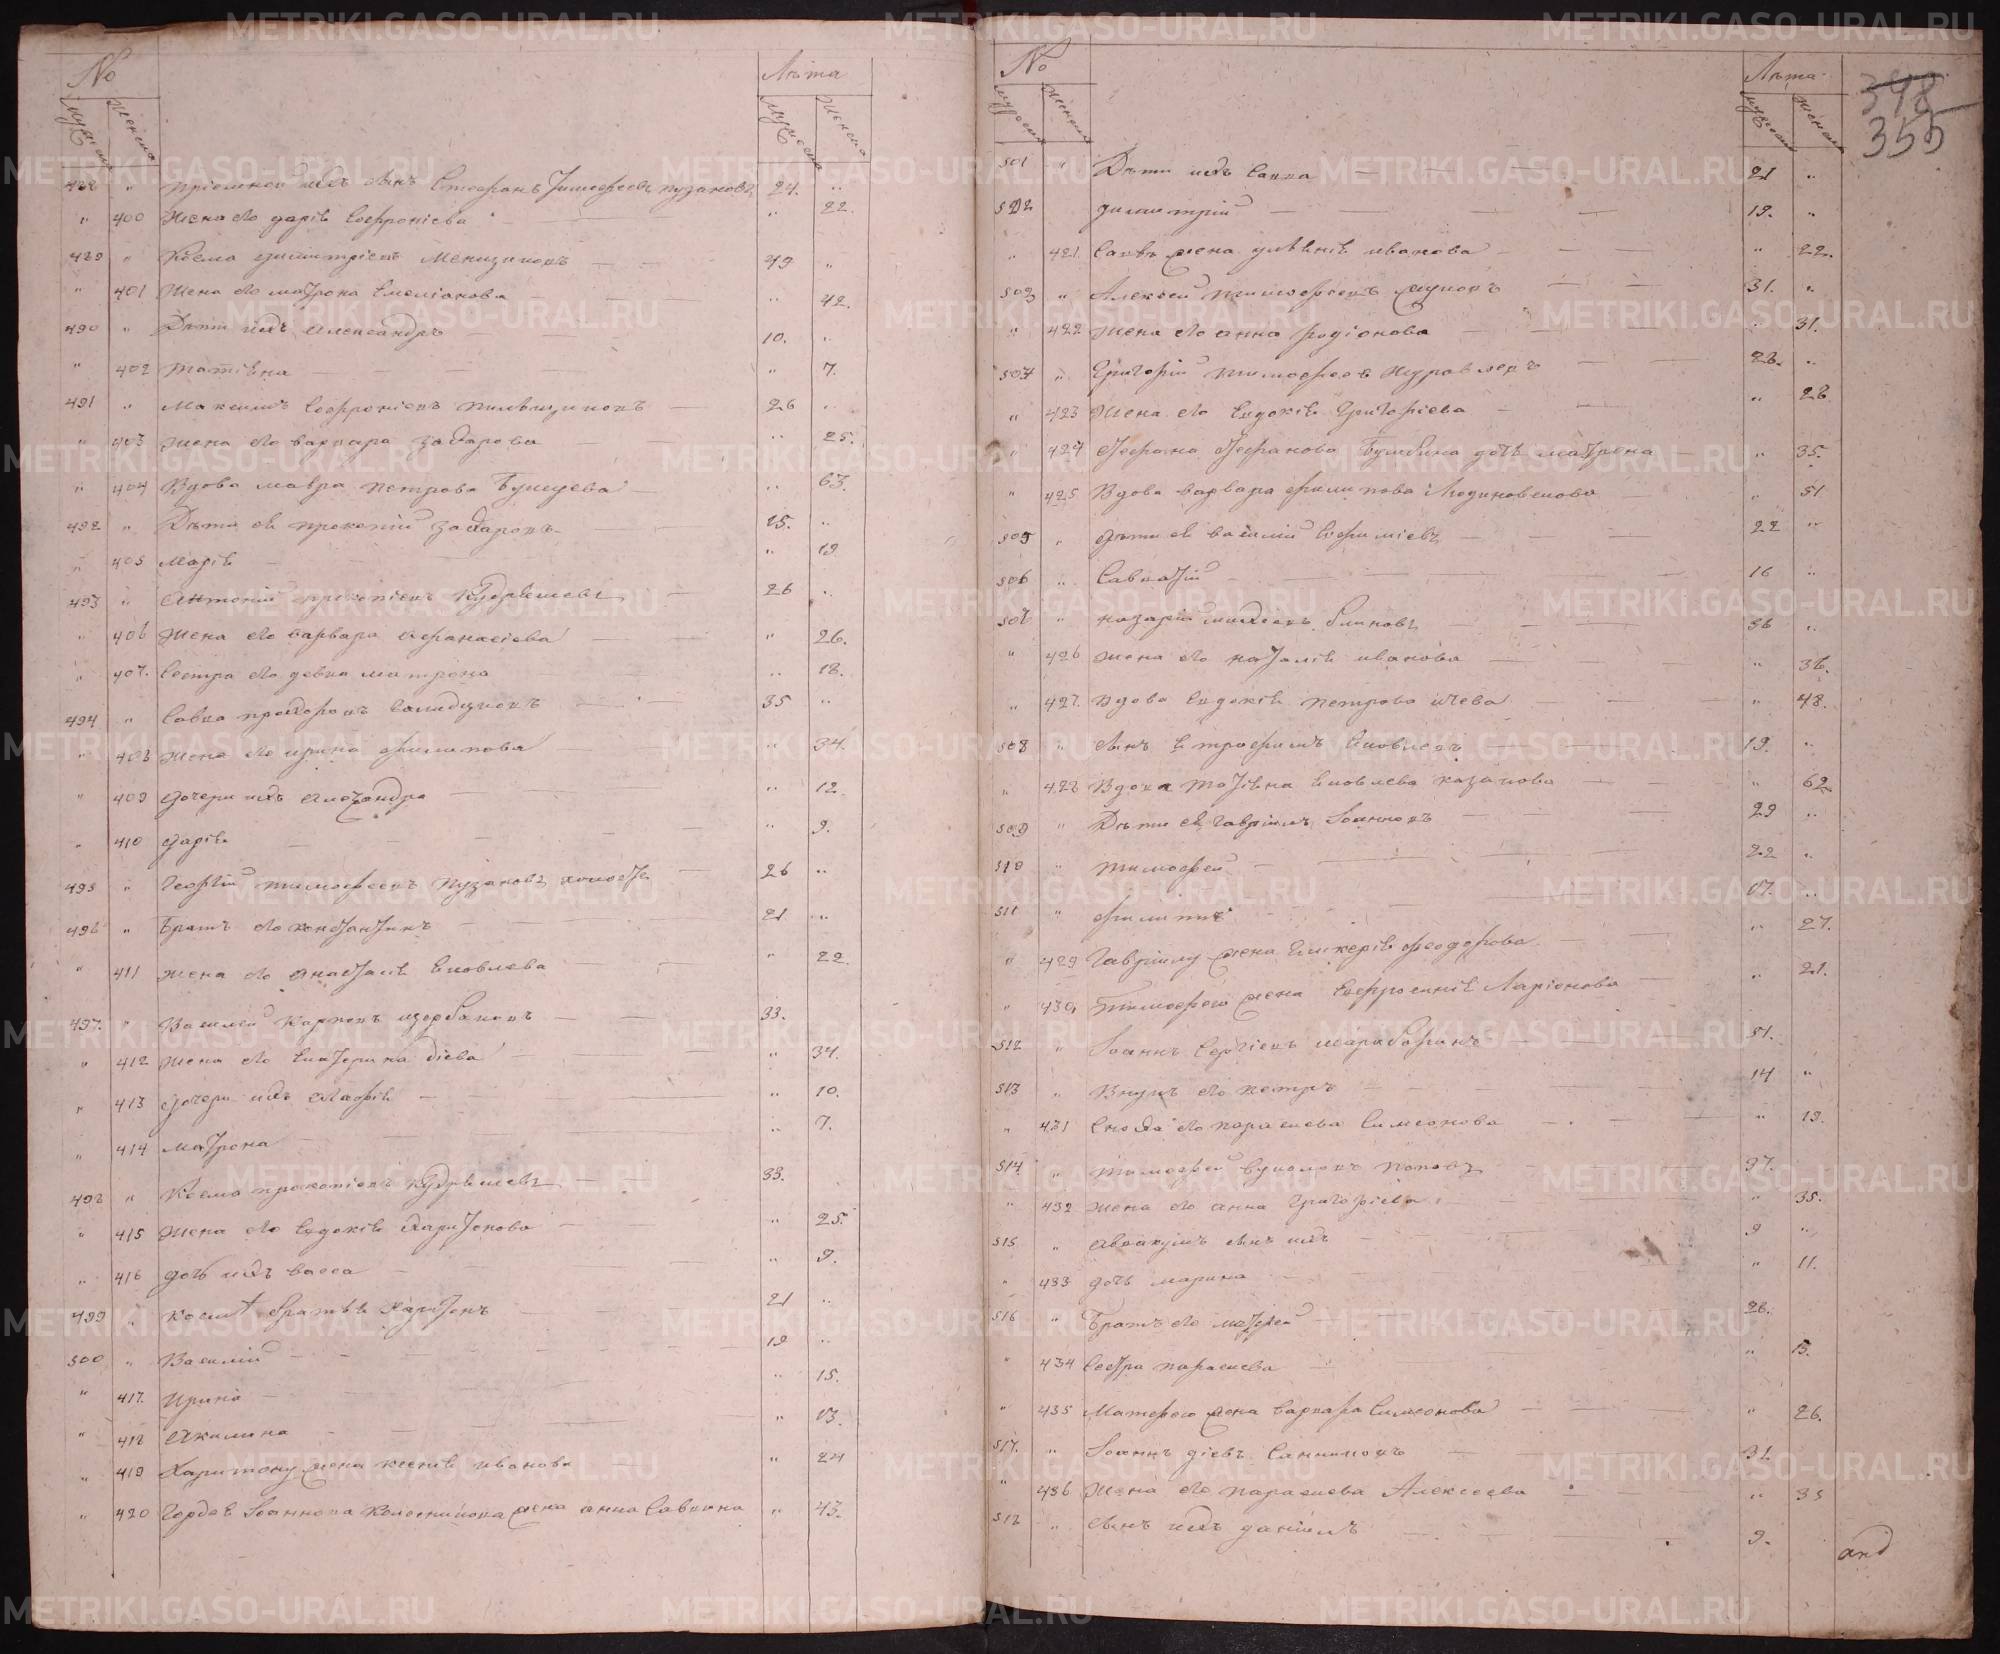 № Лѣта
мужеска женска мужеска женска
488 " Пріемной ихъ сынъ Стефанъ Тимофеевъ Пузановъ 24. "
" 400 Жена его Дарія Софроніева " 22.
489 " Косма Димитріевъ 49 "
" 401 Жена его Матрона Емеліанова " 42.
490 " Дѣти ихъ Александръ 10. "
" 402 Татіяна " 7.
491 " Максимъ Софроніевъ 26 "
" 403 Жена его Варвара Захарова " 25.
" 404 Вдова Мавра Петрова " 63.
492 " Дѣти ея Прокопій Захаровъ 15. "
" 405 Марія " 19
493 " Антоній Прокопіевъ Кудряшевъ 26 "
" 406 Жена его Варвара Афанасіева " 26.
" 407. Сестра его девка Матрона " 18.
494 " Савва Прохоровъ 35 "
" 408 Жена его Ирина Филипова " 34.
" 409 Дочери ихъ Александра " 12.
" 410 Дарія " 9.
495 " Георгій Тимофеевъ Пузановъ холостъ 26 "
496 " Братъ его Константинъ 21. "
" 411 Жена его Анастасія Яковлева " 22.
497. " Василей Карповъ Щербаковъ 33.
" 412 Жена его Екатерина Діева " 34.
" 413 Дочери ихъ Агафія " 10.
" 414 Матрона " 7.
498 " Косма Прокопіевъ Кудряшевъ 33.
" 415 Жена его Евдокія Харитонова " 25.
" 416 Дочь ихъ Васса " 9.
499 " Космы братья Харитонъ 21 "
500 " Василій 19 "
" 417. Ирина " 15.
" 418 Акилина " 13.
" 419 Харитону жена Ксенія Иванова " 24
" 420 Гордея Іоаннова Колесникова жена Анна Саввина " 43.
№ Лѣта
мужеска женска мужеска женска
348
355
501 " Дѣти ихъ Савва 21 "
502 Димитрій 19. "
" 421. Саввѣ жена Иванова " 22.
503 " Алексей Тимофеевъ 31. "
" 422 Жена его Анна Родіонова " 31.
504 " Григорій Тимофеевъ Журавлевъ 28. "
" 423 Жена его Евдокія Григоріева " 28
" 424 Стефана Стефанова дочь Матрона " 35.
" 425 Вдова Варвара Филипова " 51
505 " Дѣти ея Василій Евфиміевъ 22 "
506 " Савватій 16 "
507 " Назарій Блиновъ 36 "
" 426 Жена его Наталія Иванова " 36.
" 427. Вдова Евдокія Петрова " 48.
508 " Сынъ ея Трофимъ Яковлевъ 19. "
" 428 Вдова Татіяна Яковлева Казакова " 62.
509 " Дѣти ея Гавріилъ Іоанновъ 29 "
510 " Тимофей 22 "
511 " Филиппъ 17. "
" 429 Гавріилу жена Гликерія Феодорова " 27.
" 430 Тимофею жена Евфросинія Ларіонова " 21.
512 " Іоаннъ Сергіевъ 51.
513 " Внукъ его Петръ 14 "
" 431 Сноха его Параскева Симеонова " 19.
514 " Тимофей Вуколовъ Поповъ 37.
" 432 Жена его Анна Григоріева " 35.
515 " Аввакумъ сынъ ихъ 9 "
" 433 Дочь Марина " 11.
516 " Братъ его Матфей 26.
" 434 Сестра Параскева " 15.
" 435 Матфею жена Варвара Симеонова " 26.
517. " Іоаннъ Діевъ Санниковъ 31
" 436 Жена его Параскева Алексеева " 35
518 " Сынъ ихъ Даніилъ 9.
METRIKI.GASO-URAL.RU